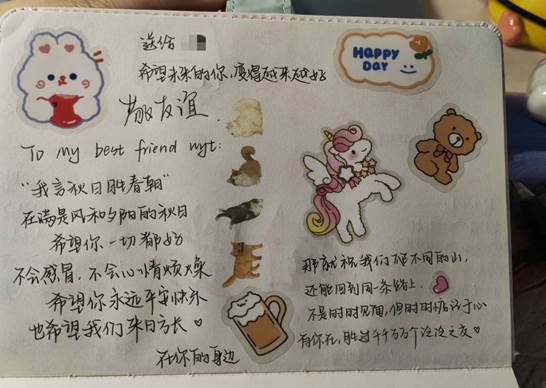 送给
希望未来的你，变得越来越好
敬友谊
HAPPY
DAY
To my best friend myt:
“我言秋日胜春朝”
在满是风和夕阳的秋日
希望你一切都好
不会感冒，不会心情烦燥
希望你永远平安快乐
也希望我们来日方长
在你的身边
那就祝我们不同的山，
还能回到同一条路上.
不是时时见面，但时时放于心
有你在，胜过千千万万个泛泛之交